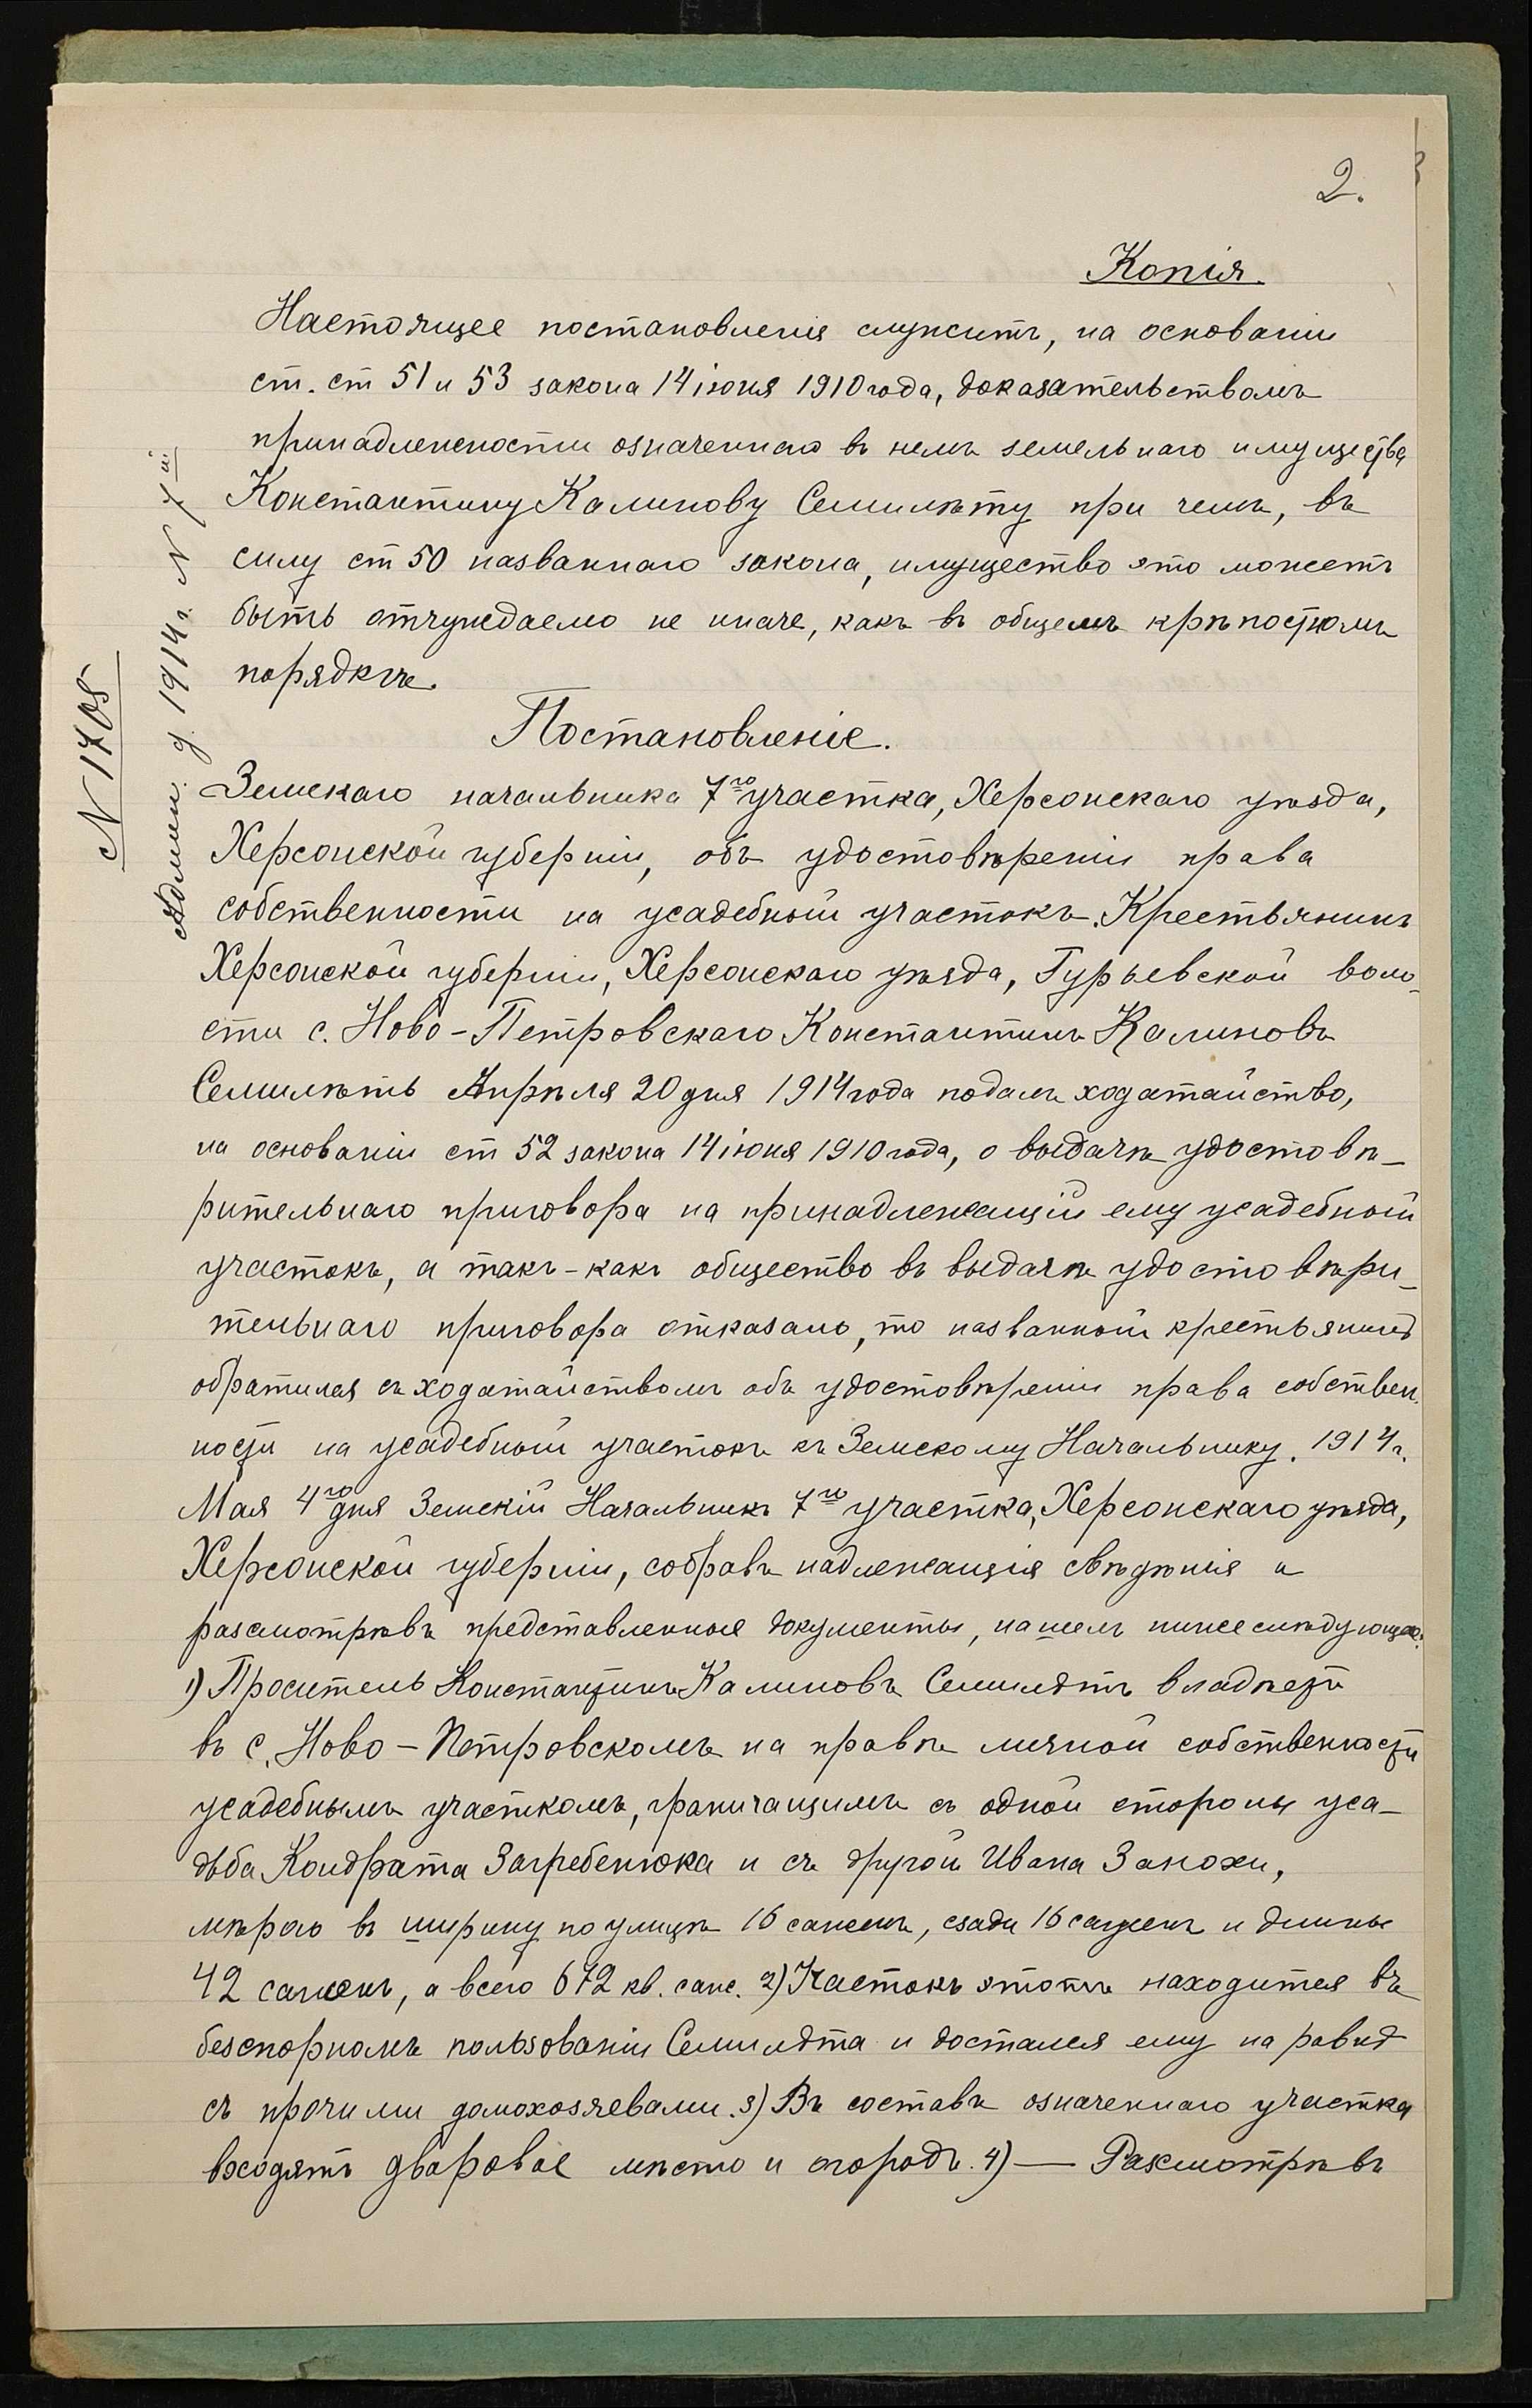 2.
Копія.
Настоящее постановленіе служитъ, на основаніи
ст. ст 51 и 53 закона 14 іюня 1910 года, доказательствомъ
принадлежности означеннаго въ немъ земельнаго имущества
Константину Калинову Семилѣту при чемъ, въ
силу ст 50 названнаго закона, имущество это можетъ
быть отчуждаемо не иначе, какъ въ общемъ крѣпостномъ
порядкѣ.
N 1708
Админ. д. 1914 г. N
Постановленіе.
Земскаго начальника 7го участка, Херсонскаго уѣзда,
Херсонской губерніи, объ удостовѣреніи права
собственности на усадебный участокъ. Крестьянинъ
Херсонской губерніи, Херсонскаго уѣзда, Гурьевской воло-
сти с. Ново-Петровскаго Константинъ Калиновъ
Семилѣтъ Апрѣля 20 дня 1914 года подалъ ходатайство,
на основаніи ст 52 закона 14 іюня 1910 года, о выдачѣ удостовѣ-
рительнаго приговора на принадлежащій ему усадебный
участокъ, а такъ-какъ общество въ выдачѣ удостовѣри-
тельнаго приговора отказало, то названный крестьянинъ
обратился съ ходатайствомъ объ удостовѣреніи права собствен-
ности на усадебный участокъ къ Земскому Начальнику. 1914 г.
Мая 4го дня Земскій Начальникъ 7го участка, Херсонскаго уѣзда,
Херсонской губерніи, собравъ надлежащія свѣдѣнія и
разсмотрѣвъ представленные документы, нашелъ нижеслѣдующее:
1) Проситель Константинъ Калиновъ Семилѣтъ владѣетъ
въ с. Ново-Петровскомъ на правѣ личной собственности
усадебнымъ участкомъ, граничащимъ съ одной стороны уса-
дьба Кондрата Загребенюка и съ другой Ивана Занохи,
мѣрою въ ширину по улицѣ 16 сажень, сзади 16 сажень и длины
42 сажень, а всего 672 кв. саж. 2) Участокъ этотъ находится въ
безспорномъ пользованіи Семилѣта и достался ему на равнѣ
съ прочими домохозяевами. 3) Въ составъ означеннаго участка
входятъ дворовое мѣсто и огородъ. 4) — Разсмотрѣвъ